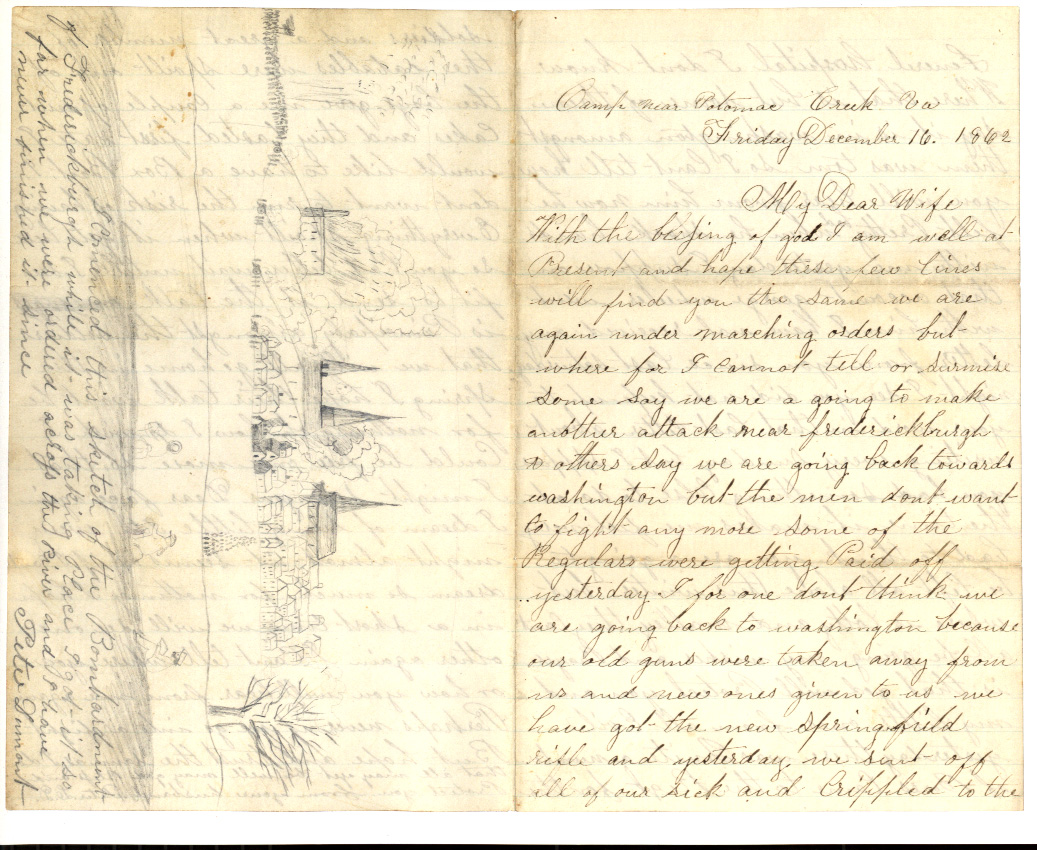 Camp near Potomac Creek Va
Friday December 16. 1862
My Dear Wife
With the blessing of god I am well at
Present and hope these few lines
will find you the same we are
again under marching orders but
where for I cannot tell or surmise
some say we are a going to make
another attack near frederickburgh
& others say we are going back towards
washington but the men dont want
to fight any more some of the
Regulars were getting Paid off
yesterday I for one dont think we
are going back to washington because
our old guns were taken away from
us and new ones given to us we
have got the new springfield
rifle and yesterday we sent off
all of our sick and Crippled to the
I Comenced this sketch of the Bombardment
of Frederickburgh while it was taking Place I got it so
far when we were ordered across the River and I have
never finished it since
Peter